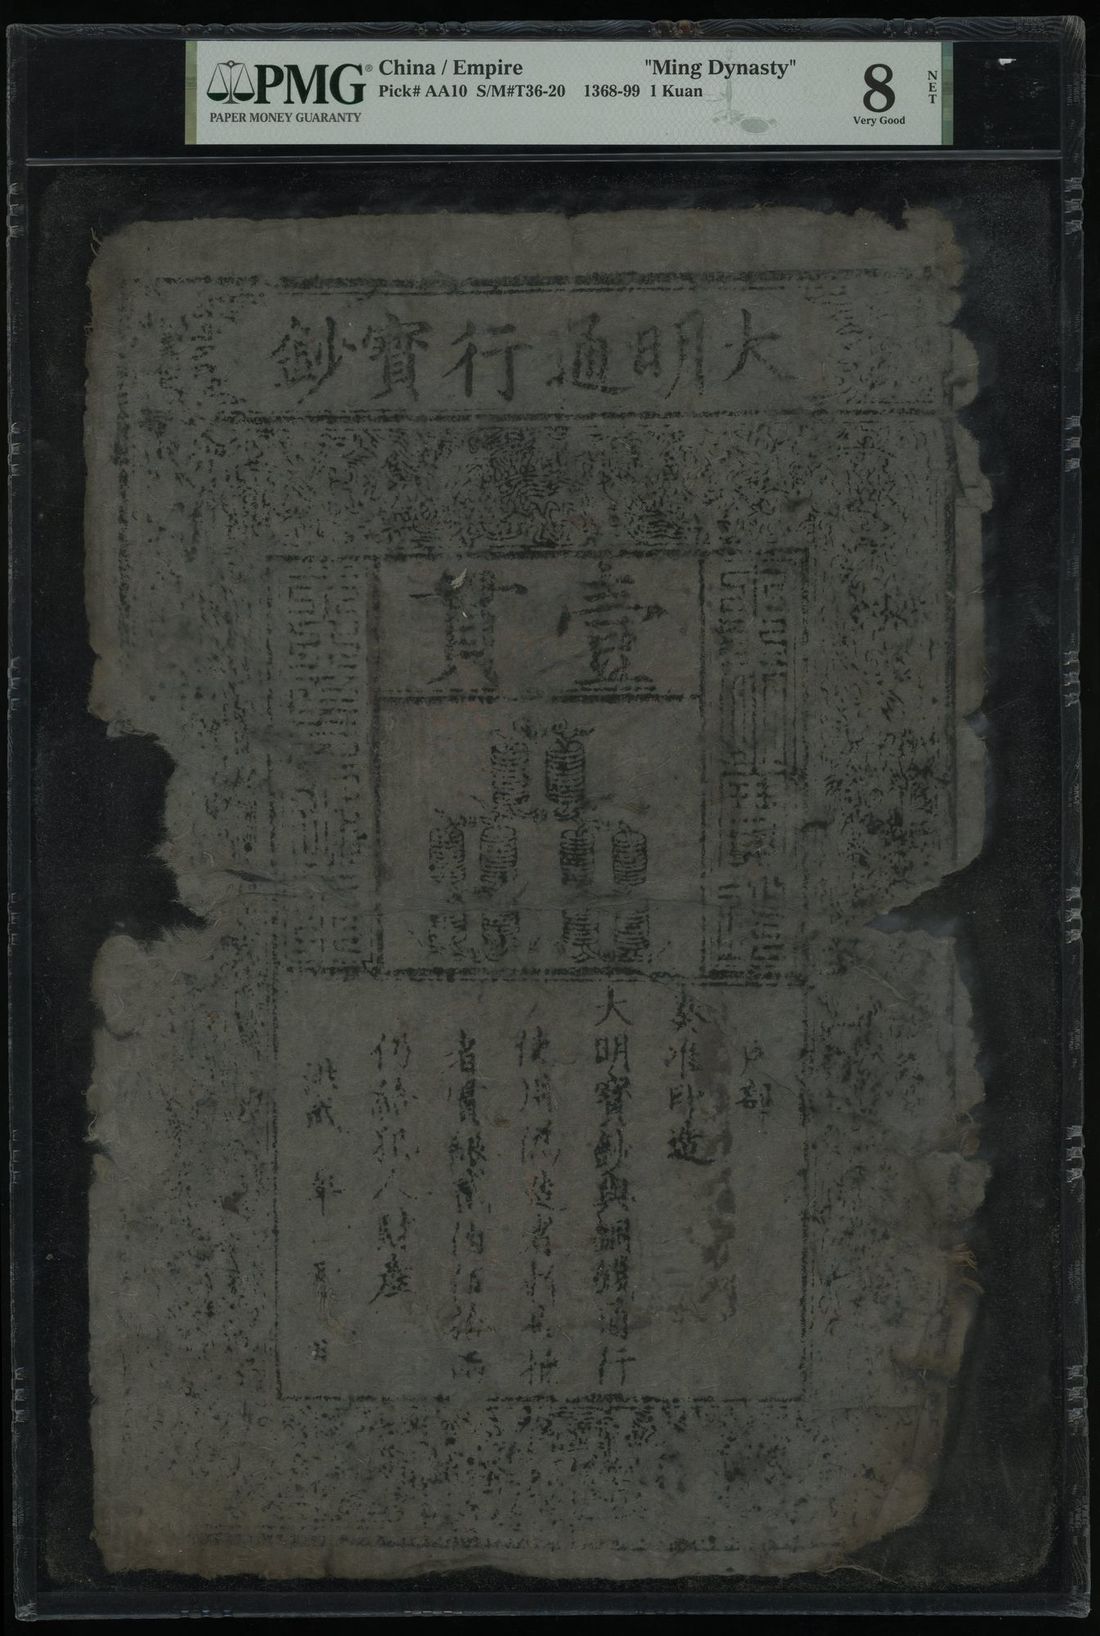 PMG®
PAPER MONEY GUARANTY
China / Empire "Ming Dynasty"
Pick# AA10 S/M#T36-20 1368-99 1 Kuan
8 NET
Very Good
大明通行寶鈔
壹貫
戶部
奏准印造
大明寶鈔與銅錢通行
使用偽造者
者賞銀
仍給犯人財產
洪武 年 月 日